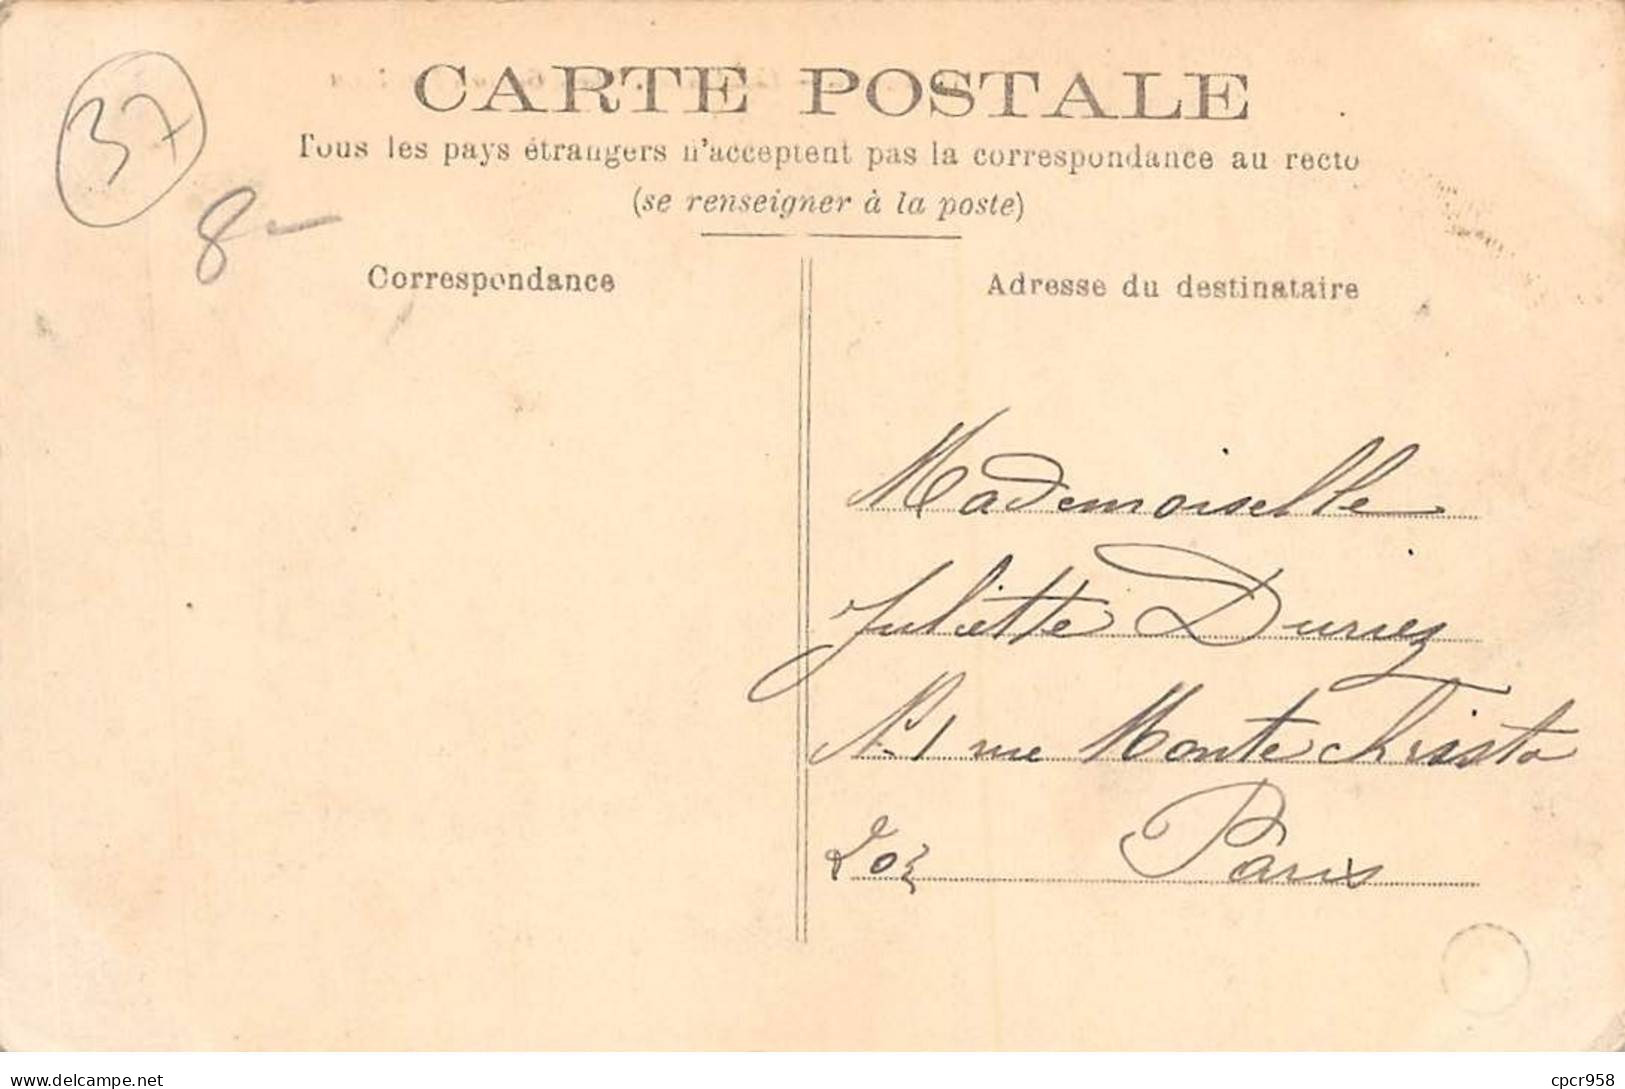 37
8-
CARTE POSTALE
Tous les pays étrangers n'acceptent pas la correspondance au recto
(se renseigner à la poste)
Correspondance
Adresse du destinataire
Mademoiselle
Juliette Duriez
1 rue Monte christo
Paris
www.delcampe.net
cpcr958